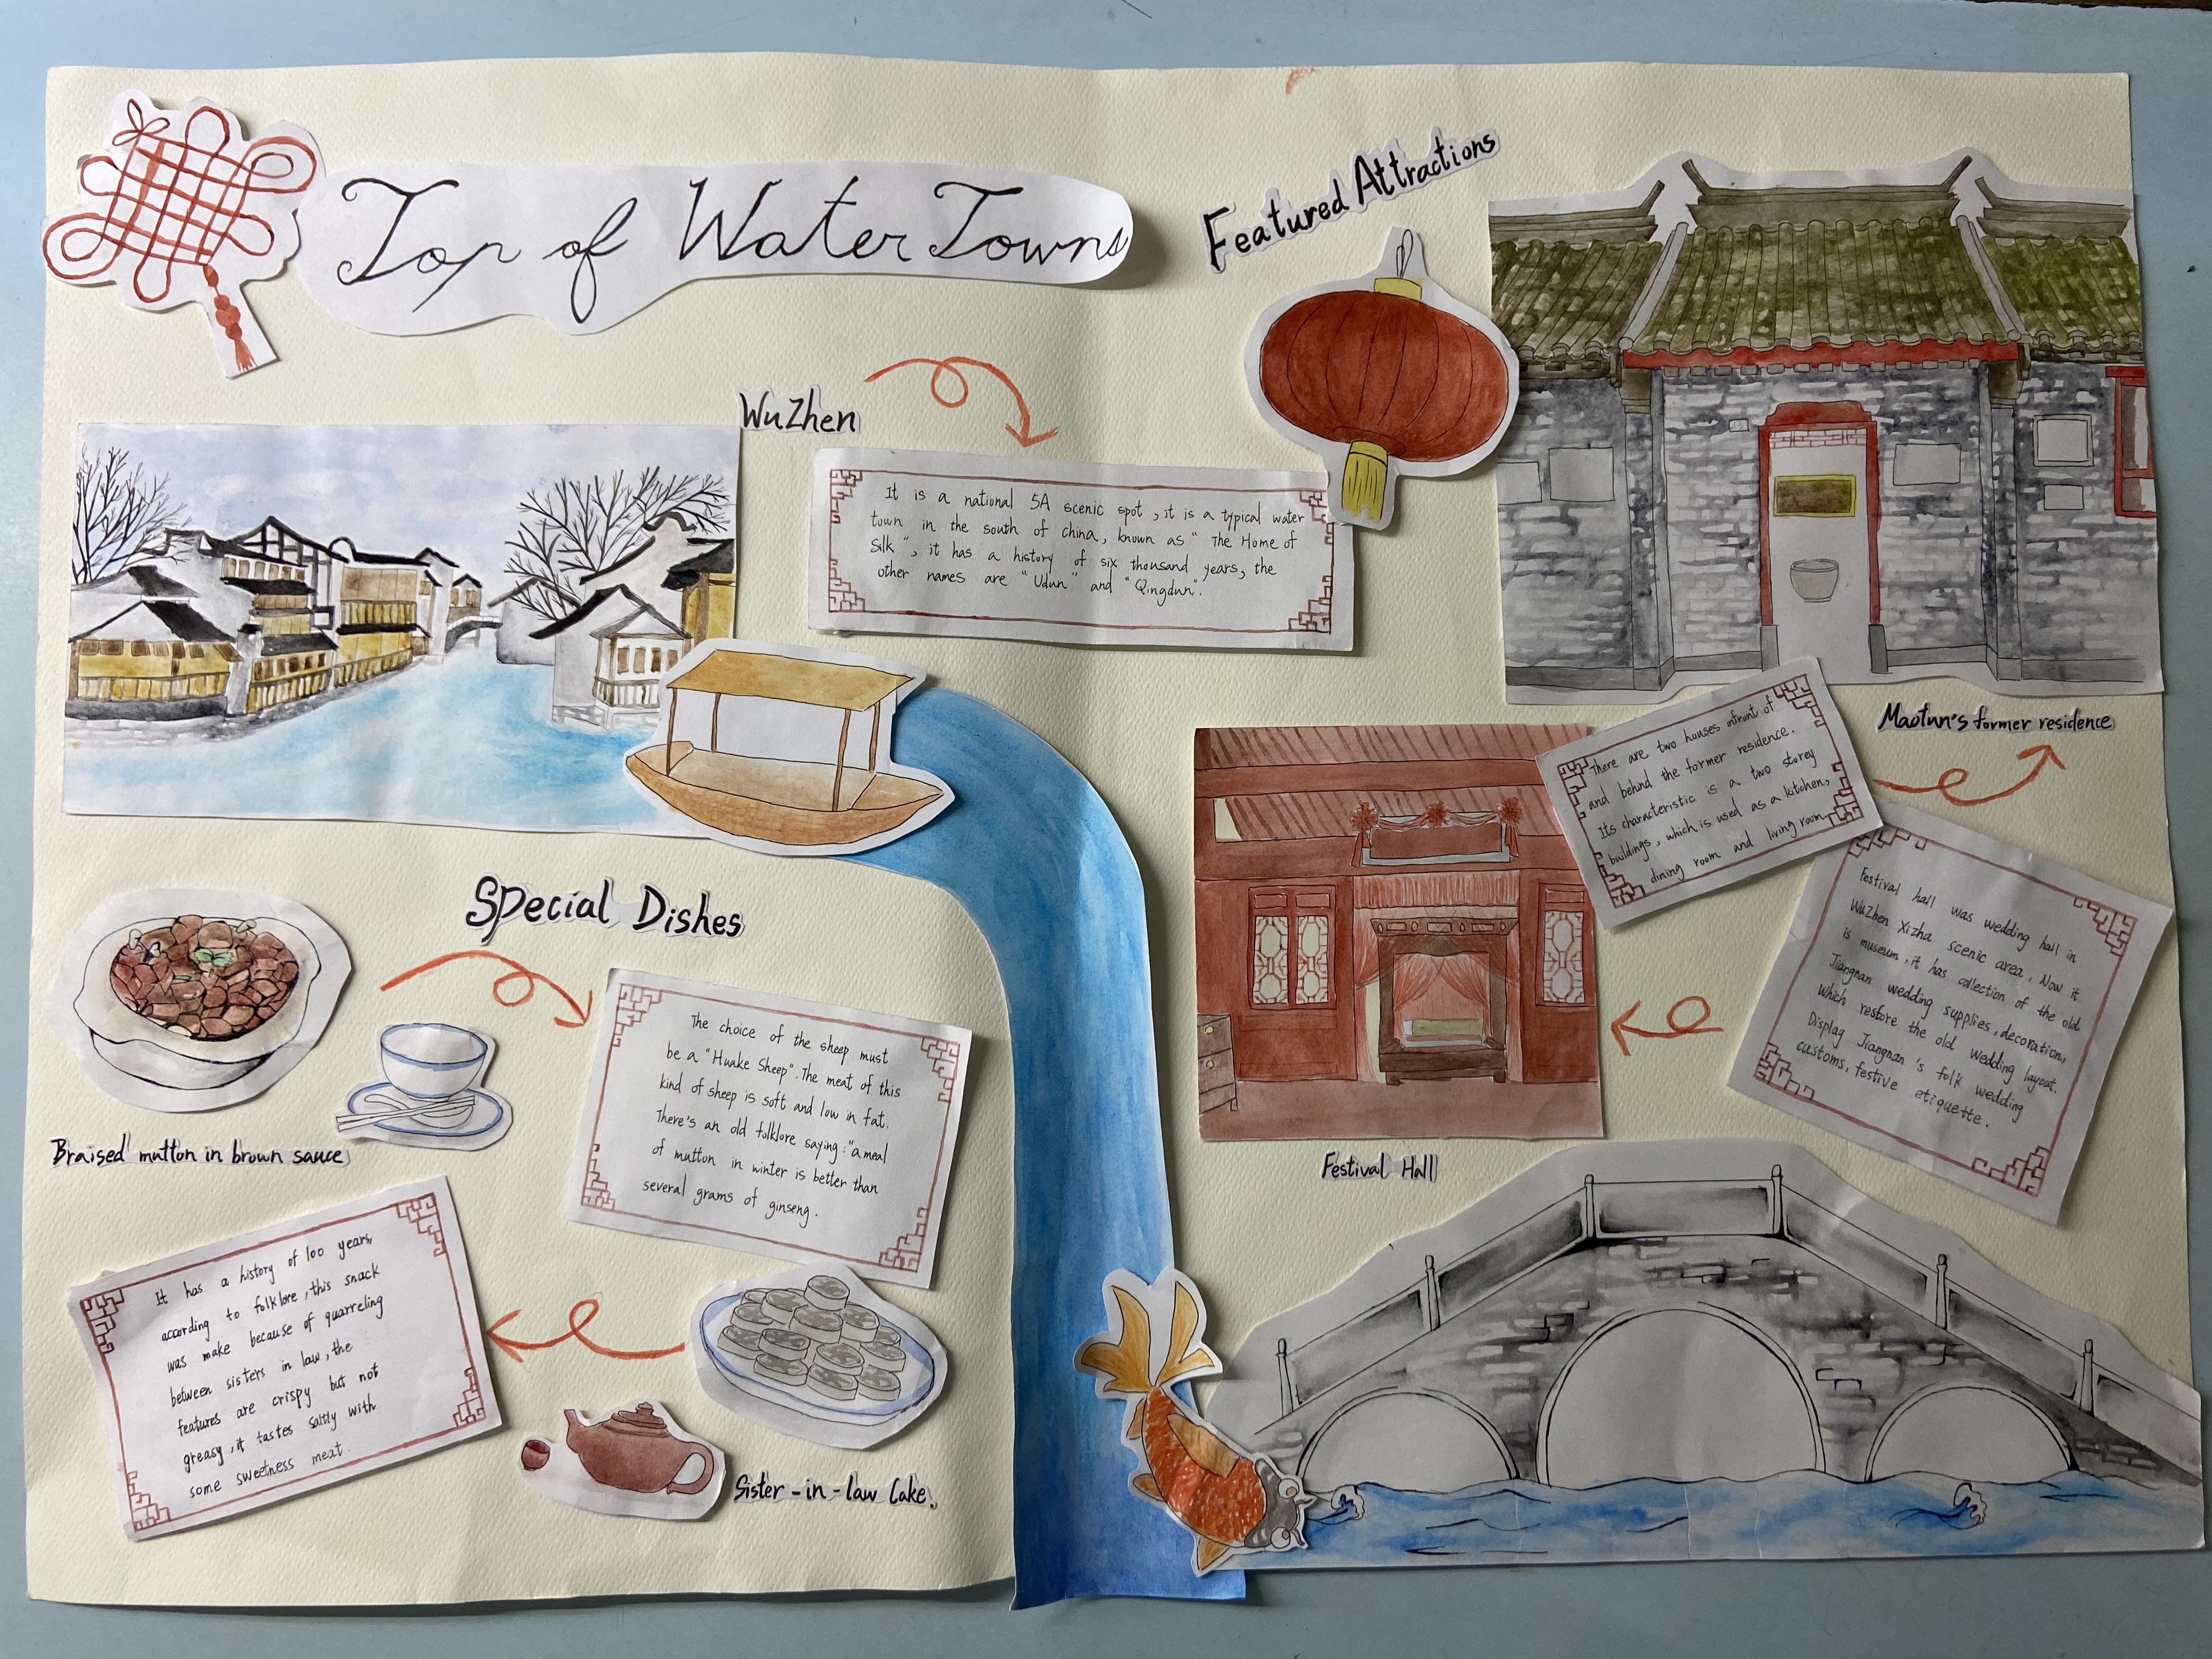 Top of Water Towns
WuZhen
It is a national 5A scenic spot, it is a typical water
town in the south of china, known as " The Home of
Silk", it has a history of six thousand years, the
other names are "Udun" and "Qingdun".
Special Dishes
Braised mutton in brown sauce
The choice of the sheep must
be a "Huake Sheep". The meat of this
kind of sheep is soft and low in fat.
There's an old folklore saying: "a meal
of mutton in winter is better than
several grams of ginseng.
It has a history of 100 years,
according to folklore, this snack
was make because of quarreling
between sisters in law, the
features are crispy but not
greasy, it tastes saltly with
some sweetness meat.
Sister-in-law Cake.
Featured Attractions
Maotun's former residence
There are two houses infront of
and behind the former residence.
Its characteristic is a two storey
buildings, which is used as a kitchen,
dining room and living room.
Festival hall was wedding hall in
WuZhen Xizha scenic area, Now it
is museum, it has collection of the old
Jiangnan wedding supplies, decoration,
which restore the old wedding layout.
Display Jiangnan's folk wedding
customs, festive etiquette.
Festival Hall